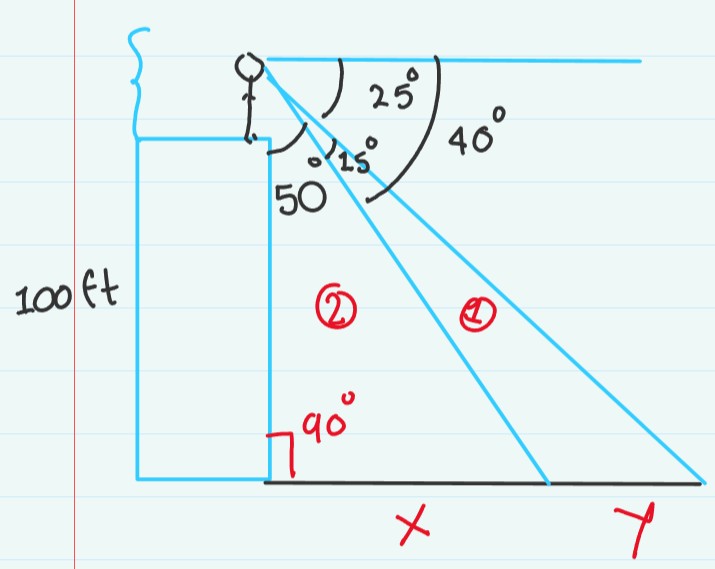 25°
40°
15°
50°
100 ft
②
①
90°
X
Y